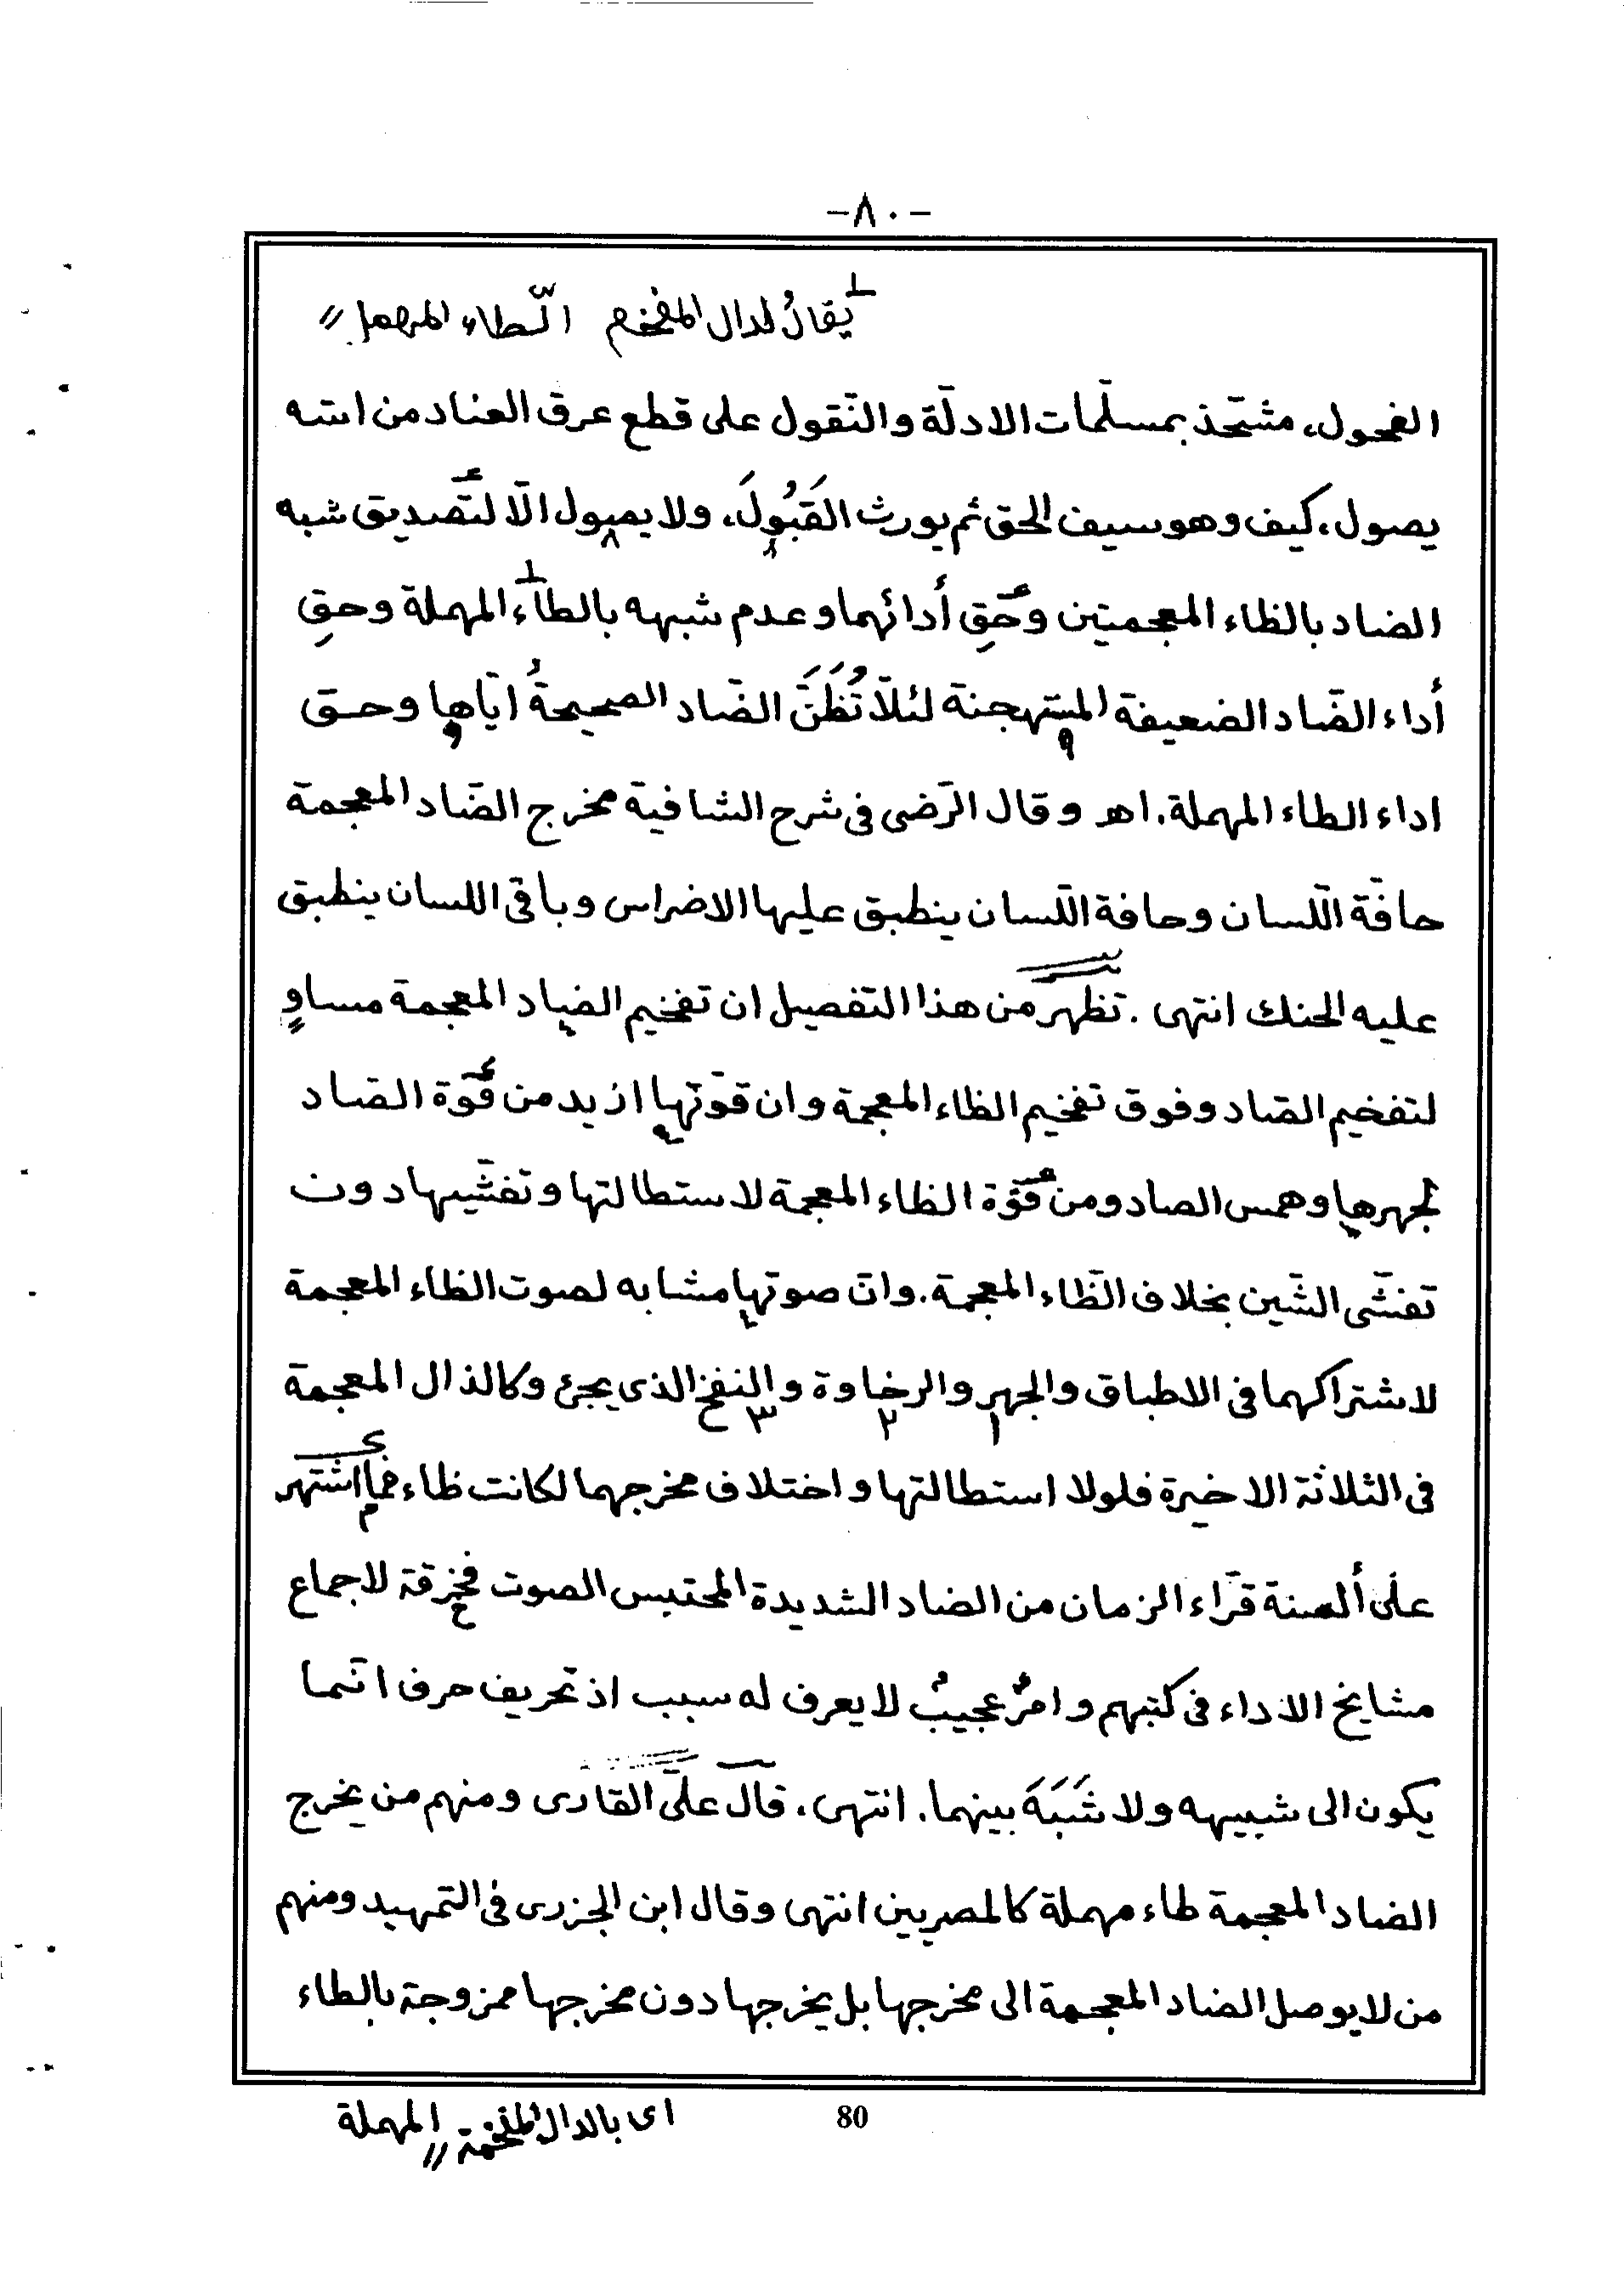 -٨٠-
يقالُ لدال المفخم الطاء المهمل //
الفحول، مشحّذ بمسلّمات الادلّة والنّقول على قطع عرق العناد من انّه
يصول، كيف وهو سيف الحق ثم يورث القَبُولَ، ولا يميول الّا لتصديق شبه
الضاد بالظاء المعجمتين وحَقِّ أدائهما وعدم شبهه بالطاء المهملة وحقِ
أداء الضّاد الضعيفة المستهجنة لئلّا تُظَنَّ الضّاد الصحيحةُ ايّاها وحق
اداء الطاء المهملة. اهـ وقال الرّضى فى شرح الشافية مخرج الضّاد المعجمة
حافّة اللّسان وحافة اللّسان ينطبق عليها الاضراس وباقى اللسان ينطبق
عليه الحنك انتهى. تظهر من هذا التفصيل ان تفخيم الضاد المعجمة مساوٍ
لتفخيم الصّاد وفوق تفخيم الظاء المعجمة وان قوّتها ازيد من قُوّة الصّاد
لجهرها وهمس الصاد ومن قُوّة الظاء المعجمة لاستطالتها وتفشّيها دون
تفشّى الشّين بخلاف الظّاء المعجمة. وانّ صوتها مشابه لصوت الظاء المعجمة
لاشتراكهما فى الاطباق والجهر والرخاوة والنفخ الذى يجئ وكالذال المعجمة
١ ٢ ٣
فى الثلاثة الاخيرة فلولا استطالتها واختلاف مخرجهما لكانت ظاء فما اشتهر
على ألسنة قرّاء الزمان من الضاد الشديدة المحتبس الصوت فخرقة لاجماع
مشايخ الاداء فى كتبهم وامرٌ عجيبٌ لا يعرف له سبب اذ تحريف حرف انّما
يكون الى شبيهه ولا شَبَهَ بينهما. انتهى، قال على القارى ومنهم من يخرج
الضاد المعجمة طاء مهملة كالمصريين انتهى وقال ابن الجزرى فى التمهيد ومنهم
من لا يوصل الضاد المعجمة الى مخرجها بل يخرجها دون مخرجها ممزوجة بالطاء
اى بالدال المفخمة المهملة //
80